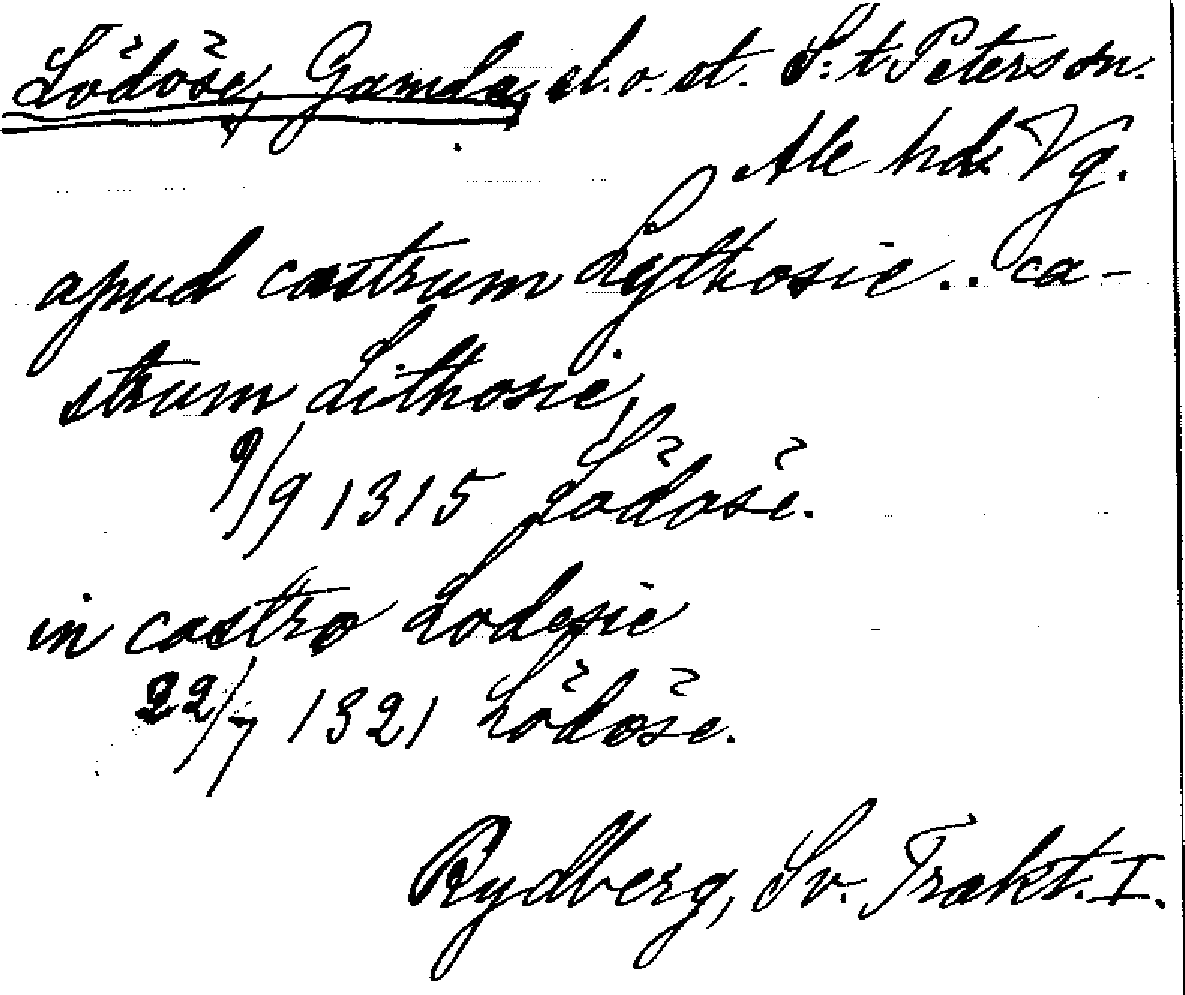 Lödöse, Gamla, sl. o. st. S:t Peters sn.
Ale hd. Vg.
apud castrum Lythosie .. ca-
strum Lithosie,
9/9 1315 Lödöse.
in castro Lodesie
22/7 1321 Lödöse.
Rydberg, Sv. Trakt. I.